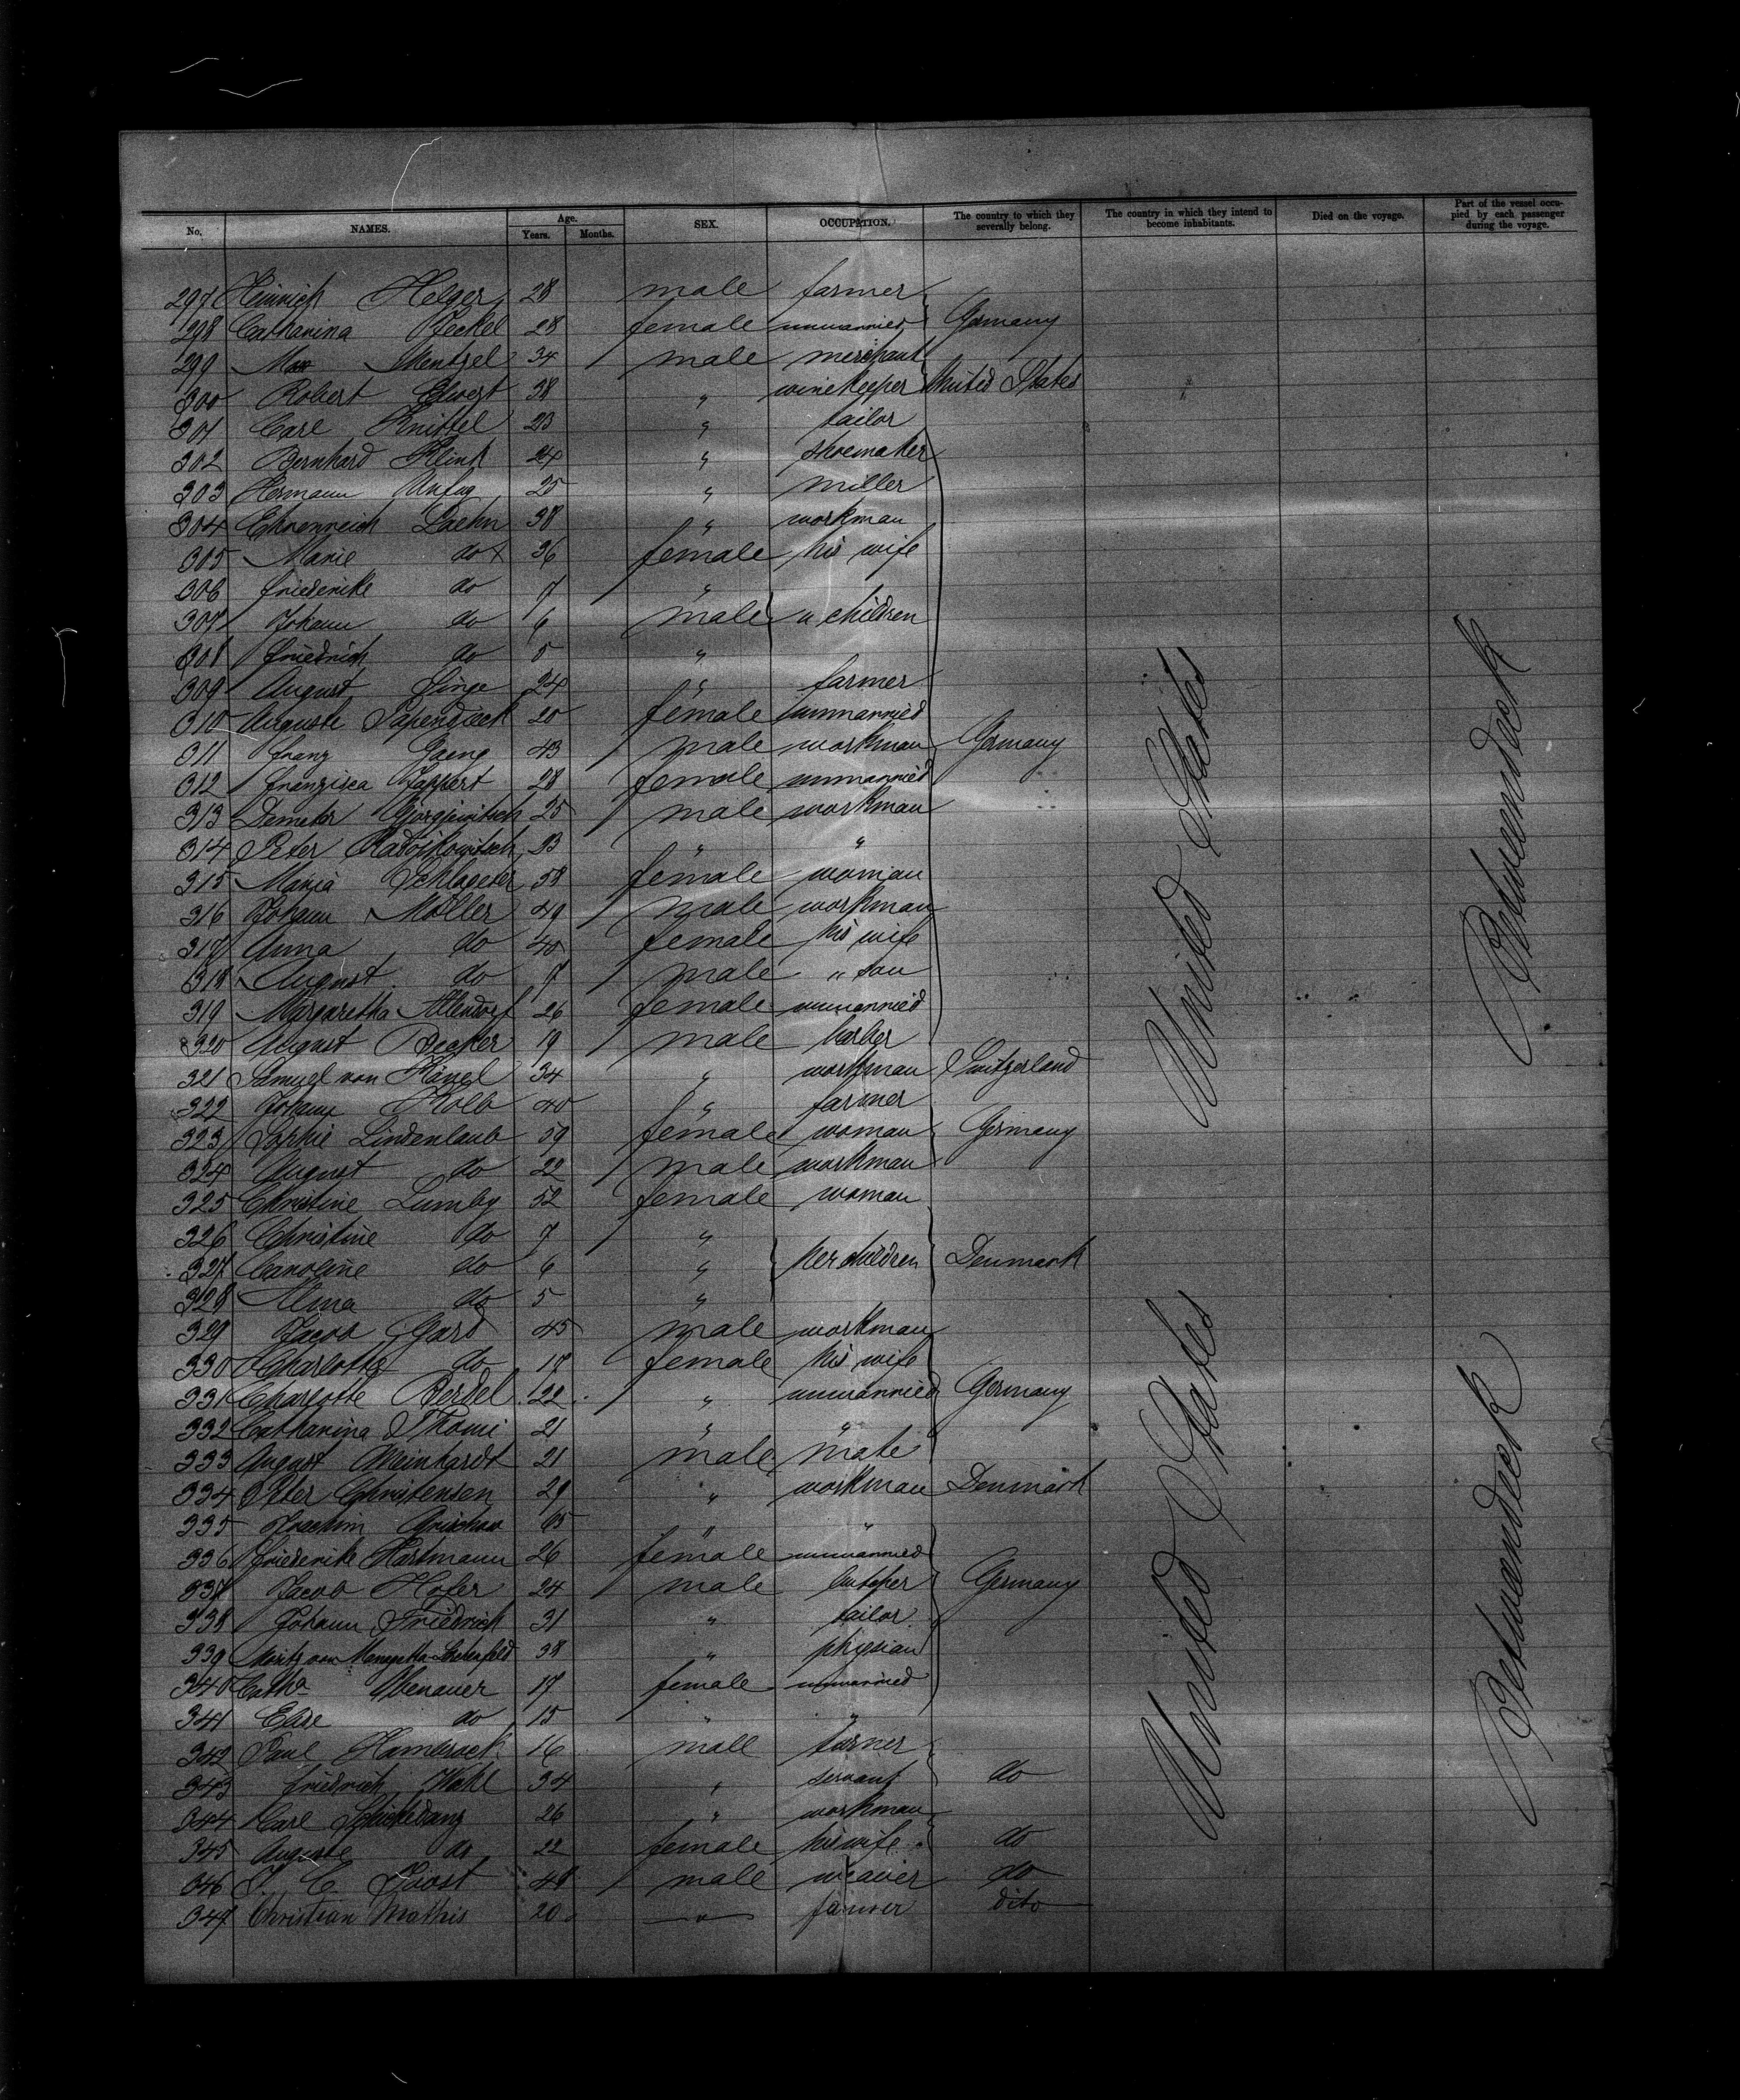 No. NAMES. Age. Years. Months. SEX. OCCUPATION. The country to which they severally belong. The country in which they intend to become inhabitants. Died on the voyage. Part of the vessel occupied by each passenger during the voyage.
297 Heinrich Helger 28 male farmer
298 Catharina Heckel 28 female unmarried Germany
299 Max Mentzel 34 male merchant
300 Robert Elwert 38 " winekeeper United States
301 Carl Knittel 23 " tailor
302 Bernhard Klink 24 " shoemaker
303 Hermann Unfug 25 " miller
304 Ehrenreich Laehn 38 " workman
305 Marie do 36 female his wife
306 Friederike do 7 "
307 Johann do 6 male " children
308 Friedrich do 5 "
309 August Linge 24 " farmer
310 Auguste Papendieck 20 female unmarried
311 Franz Gaeng 43 male workman Germany
312 Franzisca Tappert 28 female unmarried
313 Demeter 25 male workman
314 Peter Radoikowitsch 23 " "
315 Maria Schlageter 58 female woman
316 Johann Möller 49 male workman
317 Anna do 40 female his wife
318 August do 7 male " son
319 Margaretha Allendorf 26 female unmarried
320 August Becker 19 male barber
321 Samuel von Känel 34 " workman Switzerland
322 Johann Kolb 40 " farmer
323 Sophie Lindenlaub 59 female woman Germany
324 August do 22 male workman
325 Christine Lumby 52 female woman
326 Christine do 7 "
327 Caroline do 6 " her children Denmark
328 Alma do 5 "
329 Jacob Gard 45 male workman
330 Charlotte do 17 female his wife
331 Charlotte Berdel 22 " unmarried Germany
332 Catharina Thomi 21 " "
333 August Meinhardt 21 male mate
334 Peter Christensen 29 " workman Denmark
335 Joachim Grischow 65 " "
336 Friederike Hartmann 26 female unmarried
337 Jacob Hofer 24 male butcher Germany
338 Johann Friedrich 31 " tailor
339 Moritz von 38 " physian
340 Catha Ibenauer 17 female unmarried
341 Elise do 15 " "
342 Paul Hambrock 16 male turner
343 Friedrich Wahl 34 " servant do
344 Carl Schickedanz 26 " workman
345 Auguste do 22 female his wife do
346 J. C. Joost 48 male weaver do
347 Christian Mathis 20 " farmer dito
United States
United States
Betweendeck
Betweendeck